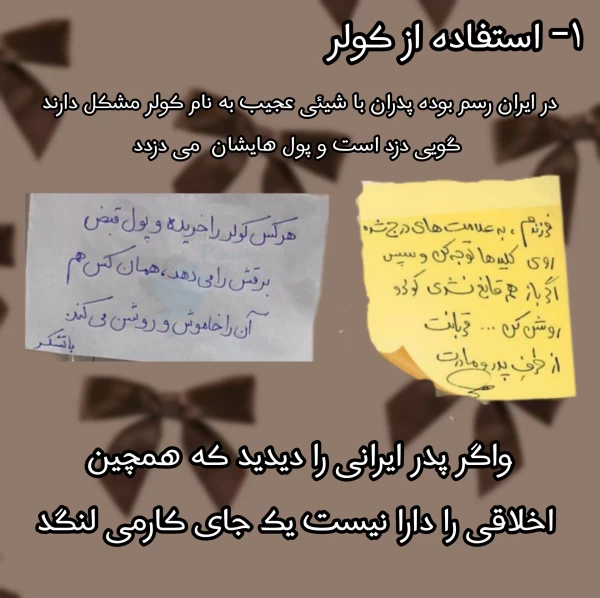 ۱- استفاده از کولر
در ایران رسم بوده پدران با شیئی عجیب به نام کولر مشکل دارند
گویی دزد است و پول هایشان می دزدد
فرزندم ، به علامت های درج شده
روی کلیدها توجه کن و سپس
اگر باز هم قانع نشدی کولرو
روشن کن ... قربانت
از طرف پدر و مادرت
هرکس کولر را خریده و پول قبض
برقش را می دهد، همان کس هم
آن را خاموش و روشن می کند.
باتشکر
واگر پدر ایرانی را دیدید که همچین
اخلاقی را دارا نیست یک جای کارمی لنگد